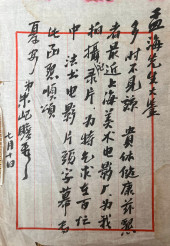 孟海先生大鉴
多时不见谅 贵体健康 并颂
者最近上海美术电影厂为我
拍摄录片 为特乞求在百忙
中 法书电影片头字幕
此函恳顺颂
夏安
弟朱屺瞻
七月十日